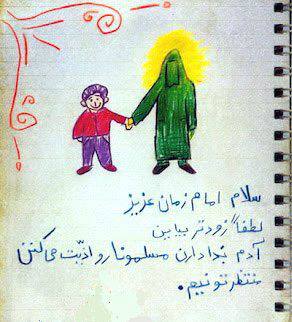 سلام امام زمان عزیز
لطفاً زودتر بیاین
آدم بدا دارن مسلمونا رو اذیّت می کنن
منتظرتونیم.